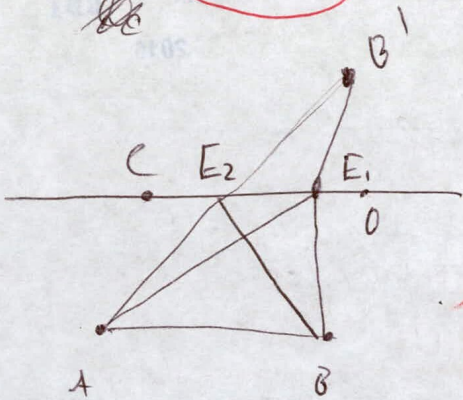 B'
C E₂ E₁
O
A B